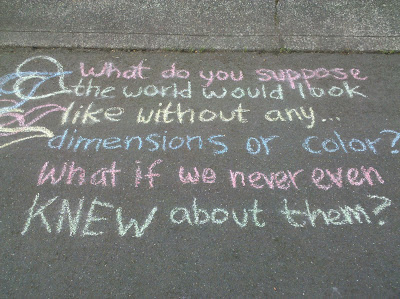 What do you suppose
the world would look
like without any...
dimensions or color?
What if we never even
KNEW about them?